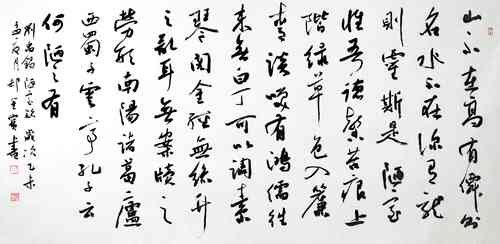 山不在高有僊則
名水不在深有龍
則靈斯是陋室
惟吾德馨苔痕上
階綠草色入簾
青談笑有鴻儒往
來無白丁可以調素
琴閱金經無絲竹
之亂耳無案牘之
勞形南陽諸葛廬
西蜀子雲亭孔子云
何陋之有
劉禹錫陋室銘歲次乙未
孟夏月書